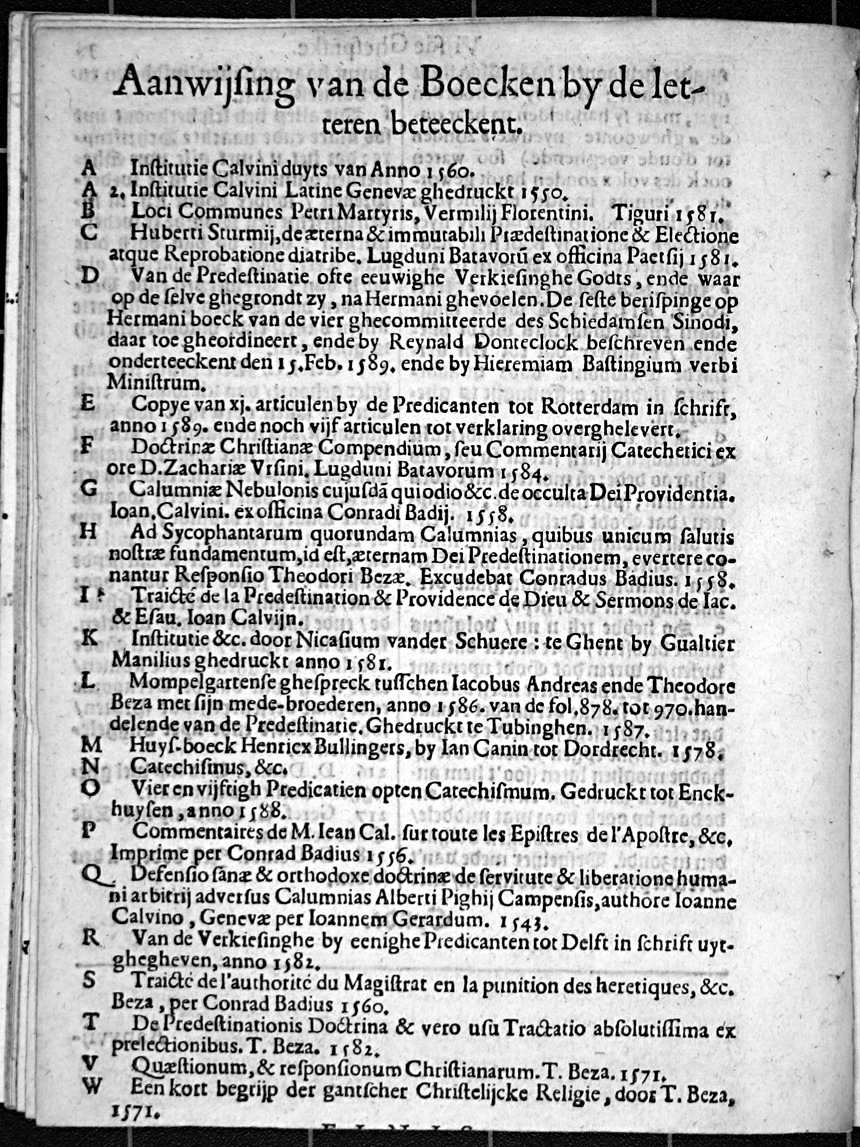 Aanwijſing van de Boecken by de let-
teren beteeckent.
A Inſtitutie Calvini duyts van Anno 1560.
A 2. Inſtitutie Calvini Latine Genevæ ghedruckt 1550.
B Loci Communes Petri Martyris, Vermilij Florentini. Tiguri 1581.
C Huberti Sturmij, de æterna & immutabili Prædeſtinatione & Electione
atque Reprobatione diatribe. Lugduni Batavorū ex officina Paetſij 1581.
D Van de Predeſtinatie ofte eeuwighe Verkieſinghe Godts, ende waar
op de ſelve ghegrondt zy, na Hermani ghevoelen. De ſeſte beriſpinge op
Hermani boeck van de vier ghecommitteerde des Schiedamſen Sinodi,
daar toe gheordineert, ende by Reynald Donteclock beſchreven ende
onderteeckent den 15. Feb. 1589. ende by Hieremiam Baſtingium verbi
Miniſtrum.
E Copye van xj. articulen by de Predicanten tot Rotterdam in ſchrift,
anno 1589. ende noch vijf articulen tot verklaring overghelevert.
F Doctrinæ Chriſtianæ Compendium, ſeu Commentarij Catechetici ex
ore D. Zachariæ Vrſini. Lugduni Batavorum 1584.
G Calumniæ Nebulonis cujuſdā qui odio &c. de occulta Dei Providentia.
Ioan. Calvini. ex officina Conradi Badij. 1558.
H Ad Sycophantarum quorundam Calumnias, quibus unicum ſalutis
noſtræ fundamentum, id eſt, æternam Dei Predeſtinationem, evertere co-
nantur Reſponſio Theodori Bezæ. Excudebat Conradus Badius. 1558.
I Traicté de la Predeſtination & Providence de Dieu & Sermons de Iac.
& Eſau. Ioan Calvijn.
K Inſtitutie &c. door Nicaſium vander Schuere : te Ghent by Gualtier
Manilius ghedruckt anno 1581.
L Mompelgartenſe gheſpreck tuſſchen Iacobus Andreas ende Theodore
Beza met ſijn mede-broederen, anno 1586. van de fol. 878. tot 970. han-
delende van de Predeſtinatie. Ghedruckt te Tubinghen. 1587.
M Huyſ-boeck Henricx Bullingers, by Ian Canin tot Dordrecht. 1578.
N Catechiſmus, &c.
O Vier en vijftigh Predicatien opten Catechiſmum. Gedruckt tot Enck-
huyſen, anno 1588.
P Commentaires de M. Iean Cal. ſur toute les Epiſtres de l'Apoſtre, &c.
Imprime per Conrad Badius 1556.
Q Defenſio ſanæ & orthodoxe doctrinæ de ſervitute & liberatione huma-
ni arbitrij adverſus Calumnias Alberti Pighij Campenſis, authore Ioanne
Calvino, Genevæ per Ioannem Gerardum. 1543.
R Van de Verkieſinghe by eenighe Predicanten tot Delft in ſchrift uyt-
ghegheven, anno 1582.
S Traicté de l'authorité du Magiſtrat en la punition des heretiques, &c.
Beza, per Conrad Badius 1560.
T De Predeſtinationis Doctrina & vero uſu Tractatio abſolutiſſima ex
prelectionibus. T. Beza. 1582.
V Quæſtionum, & reſponſionum Chriſtianarum. T. Beza. 1571.
W Een kort begrijp der gantſcher Chriſtelijcke Religie, door T. Beza,
1571.